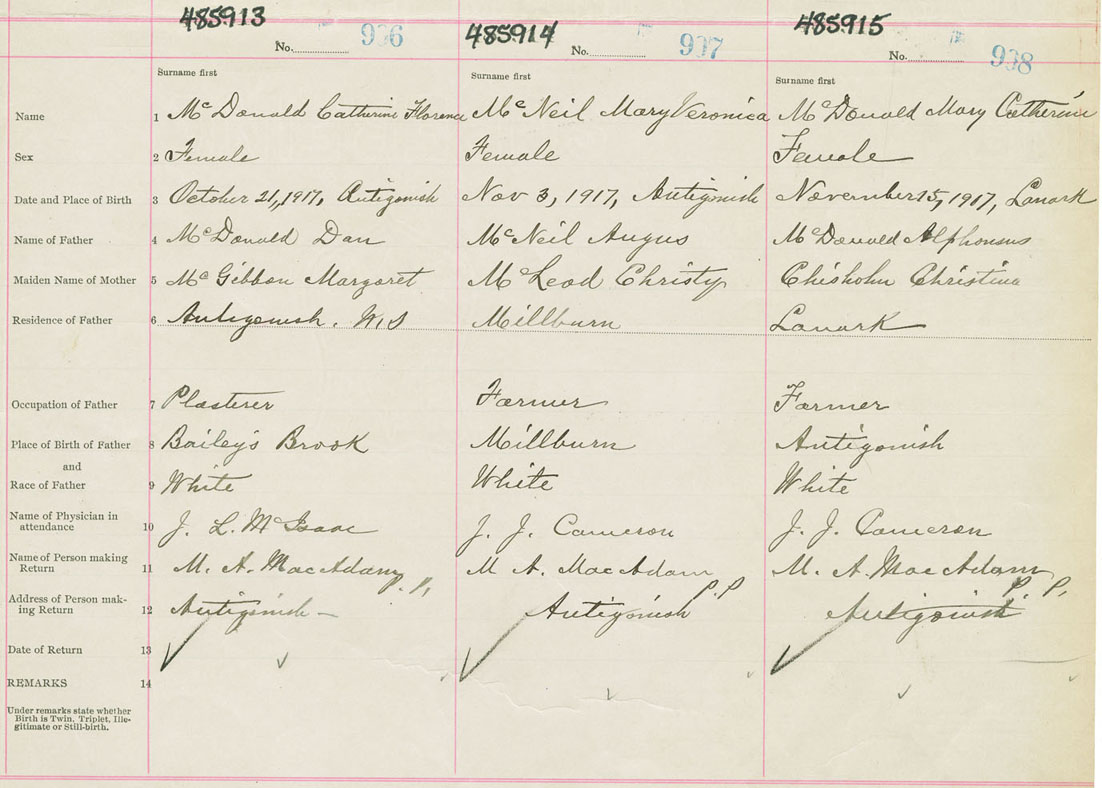 485913 485914 485915
No. 936 No. 937 No. 938
Surname first Surname first Surname first
Name 1 McDonald Catherine Florence McNeil Mary Veronica McDonald Mary Catherine
Sex 2 Female Female Female
Date and Place of Birth 3 October 21, 1917, Antigonish Nov 3, 1917, Antigonish November 15, 1917, Lanark
Name of Father 4 McDonald Dan McNeil Angus McDonald Alphonsus
Maiden Name of Mother 5 McGibbon Margaret McLeod Christy Chisholm Christina
Residence of Father 6 Antigonish. N.S Millburn Lanark
Occupation of Father 7 Plasterer Farmer Farmer
Place of Birth of Father 8 Bailey's Brook Millburn Antigonish
and
Race of Father 9 White White White
Name of Physician in
attendance 10 J. L. McIsaac J. J. Cameron J. J. Cameron
Name of Person making
Return 11 M. A. MacAdam P.P. M A. MacAdam P.P M. A. MacAdam P.P.
Address of Person mak-
ing Return 12 Antigonish Antigonish Antigonish
Date of Return 13
REMARKS 14
Under remarks state whether
Birth is Twin, Triplet, Ille-
gitimate or Still-birth.